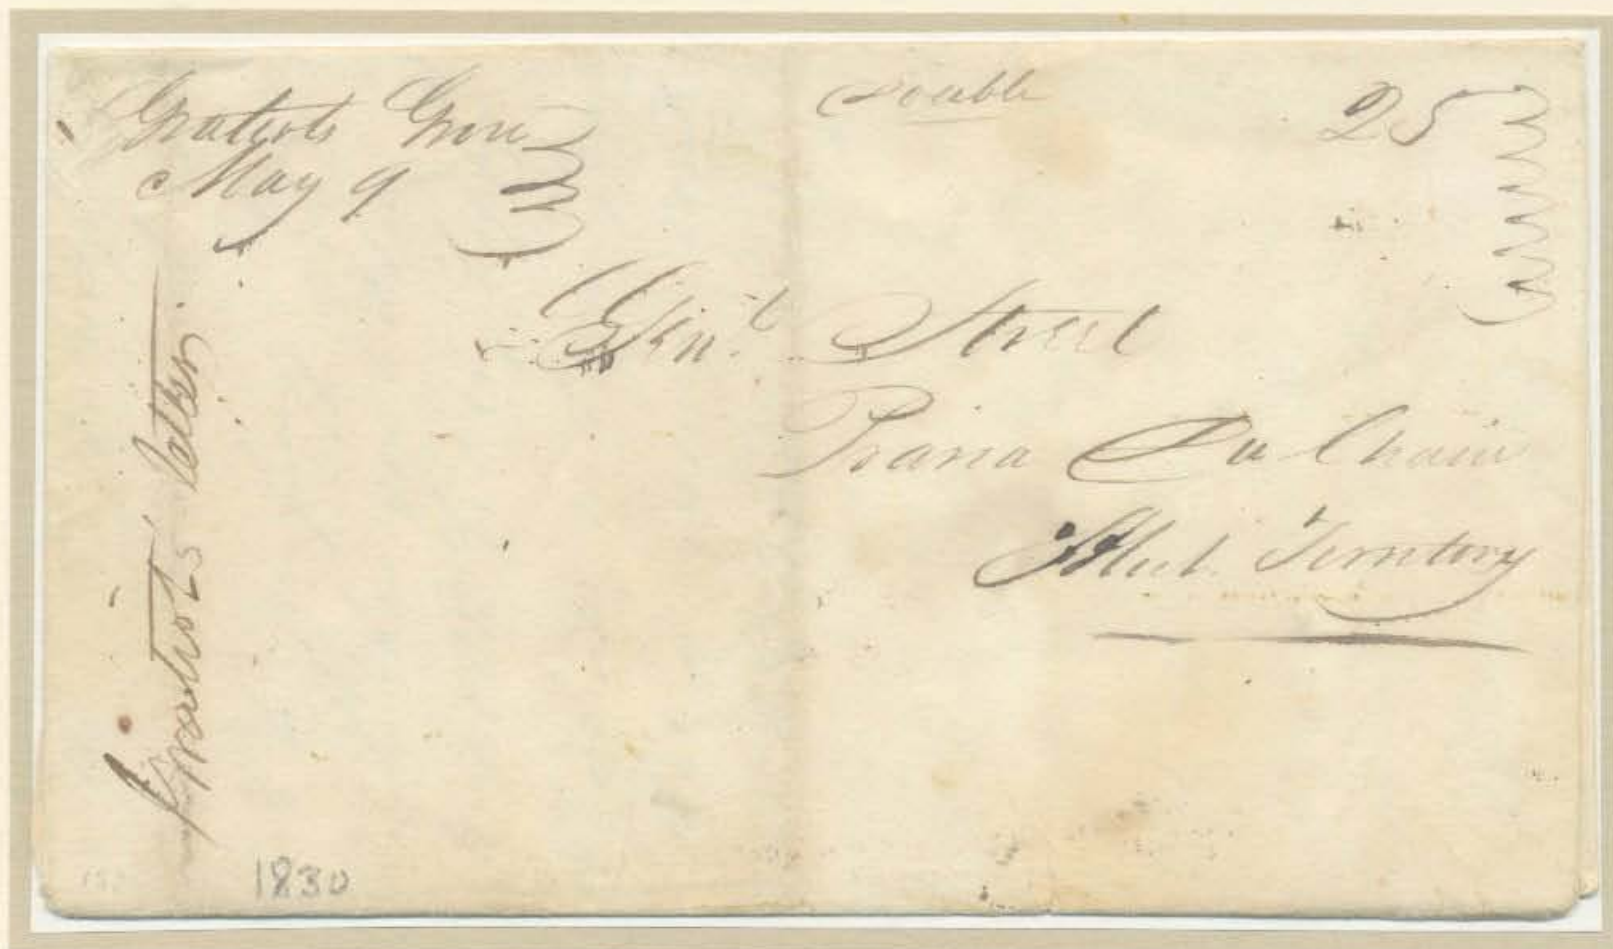 Gratiots Grove
May 9
Double
25
Genl. Street
Praria Du Chain
Mich. Territory
Gratiots' letter
1830